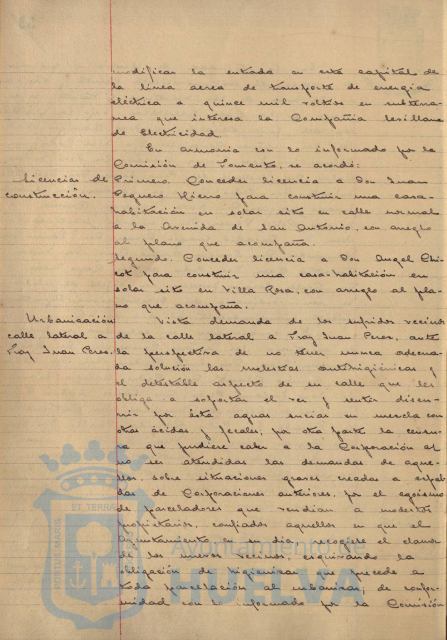 modificar la entrada en esta capital de
la línea aerea de transporte de energia
eléctrica a quince mil voltios en subterra-
nea que interesa la Compañia Sevillana
de Electricidad.
En armonia con lo informado por la
Comisión de Fomento, se acordó:
Licencias de
construcción.
Primero. Conceder licencia a Don Juan
Peguero Hierro para construir una casa-
habitación en solar sito en calle normal
a la Avenida de San Antonio, con arreglo
al plano que acompaña.
Segundo. Conceder licencia a Don Angel Chi-
cot para construir una casa-habitación en
solar sito en Villa Rosa, con arreglo al pla-
no que acompaña.
Urbanización
calle lateral a
Fray Juan Perez.
Vista demanda de los sufridos vecinos
de la calle lateral a Fray Juan Perez, ante
la perspectiva de no tener nunca adecua-
da solución las molestias antihigiénicas y
el detestable aspecto de su calle que les
obliga a soportar el ver y sentir discu-
rrir por ésta aguas sucias en mezcla con
otras ácidas y fecales, por otra parte la censu-
ra que pudiere caber a la Corporación al
no ser atendidas las demandas de aque-
llos, sobre situaciones graves creadas a espal-
das de Corporaciones anteriores, por el egoismo
de parceladores que vendian a modestos
propietarios, confiados aquellos en que el
Ayuntamiento en su dia, recogiere el clamor
de los nuevos vecinos, esquivando la
obligación de higienizar que precede a
toda parcelación al urbanizar, de confor-
midad con lo informado por la Comisión
Ayuntamiento de
HUELVA